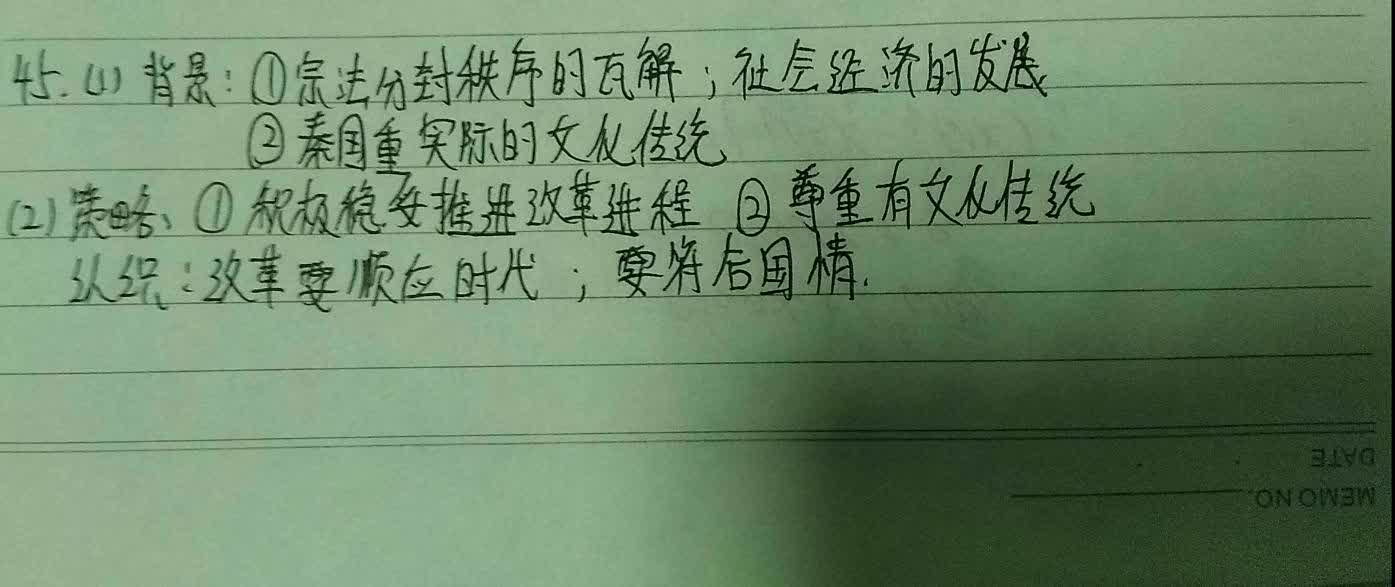 45.(1) 背景：①宗法分封秩序的瓦解；社会经济的发展
②秦国重实际的文化传统
(2) 策略：①积极稳妥推进改革进程 ②尊重有文化传统
认识：改革要顺应时代；要符合国情.
DATE
MEMO NO